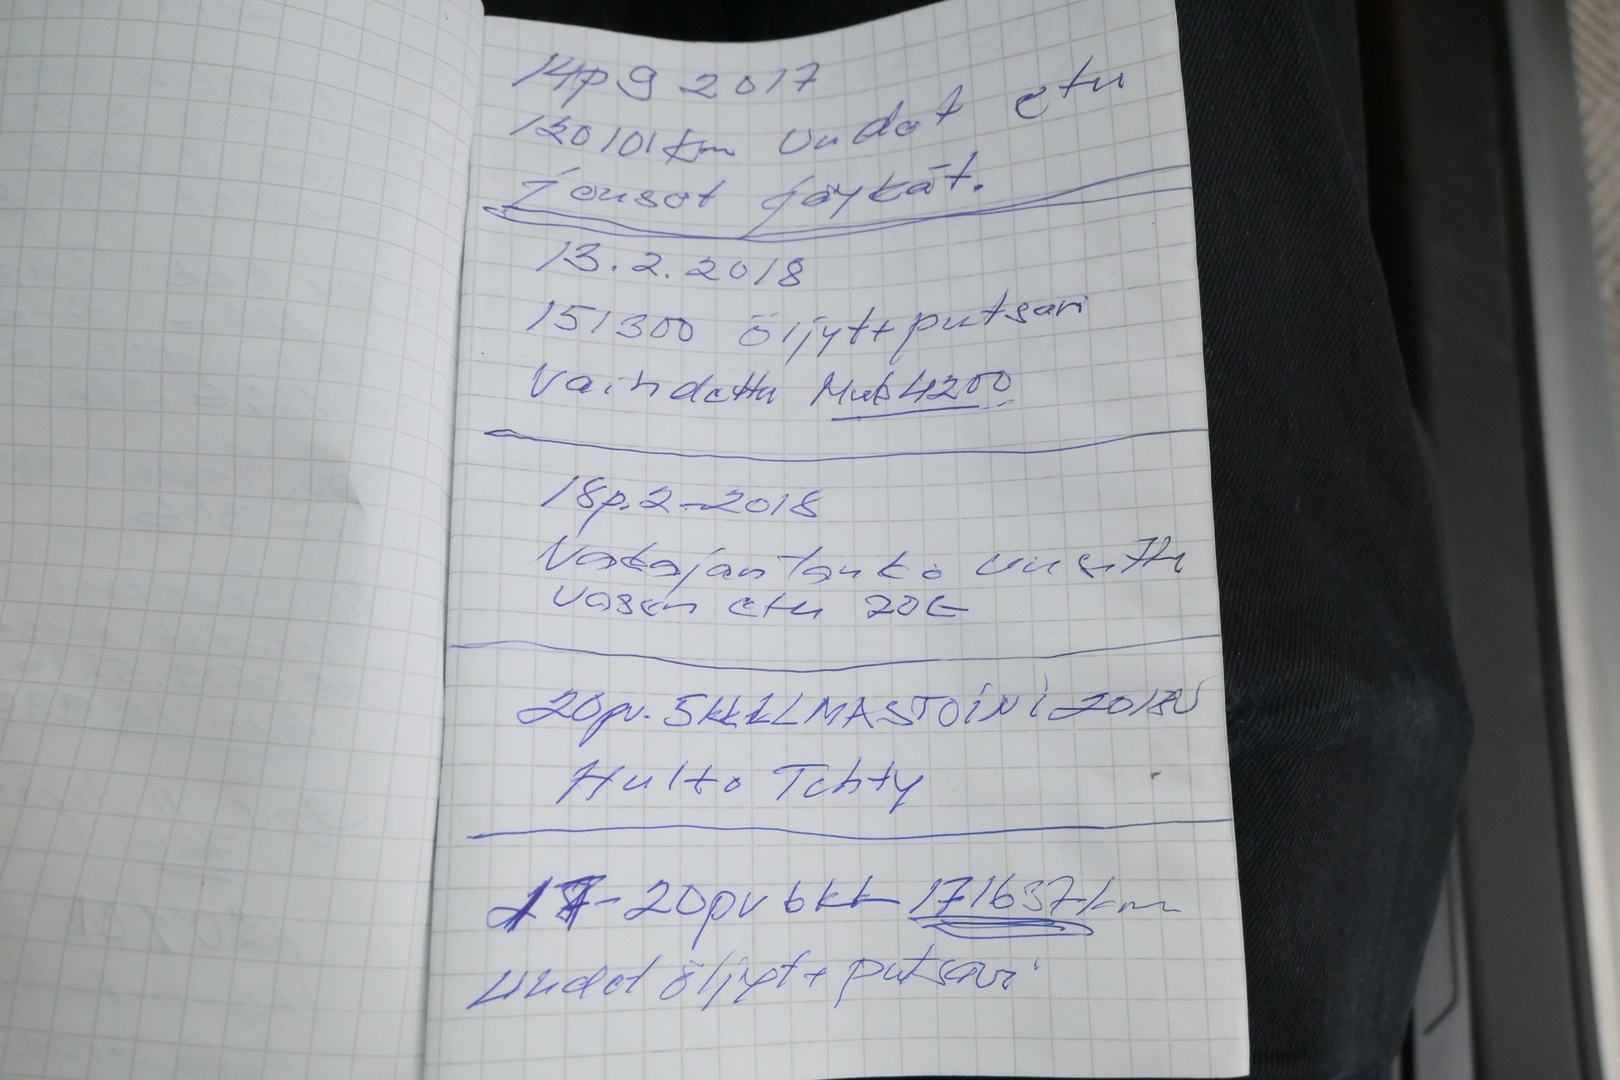 14p 9 2017
130101 km Uudet etu
Jouset jäykät.
13.2.2018
151300 öljyt+putsari
Vaihdettu 4200
18p.2-2018
Vakajantanko uusittu
vasen etu 20€
20pv. 5kk ILMASTOINI 2018V
Hulto Tehty
17-20pv 6kk 171637 km
Uudet öljyt+putsari